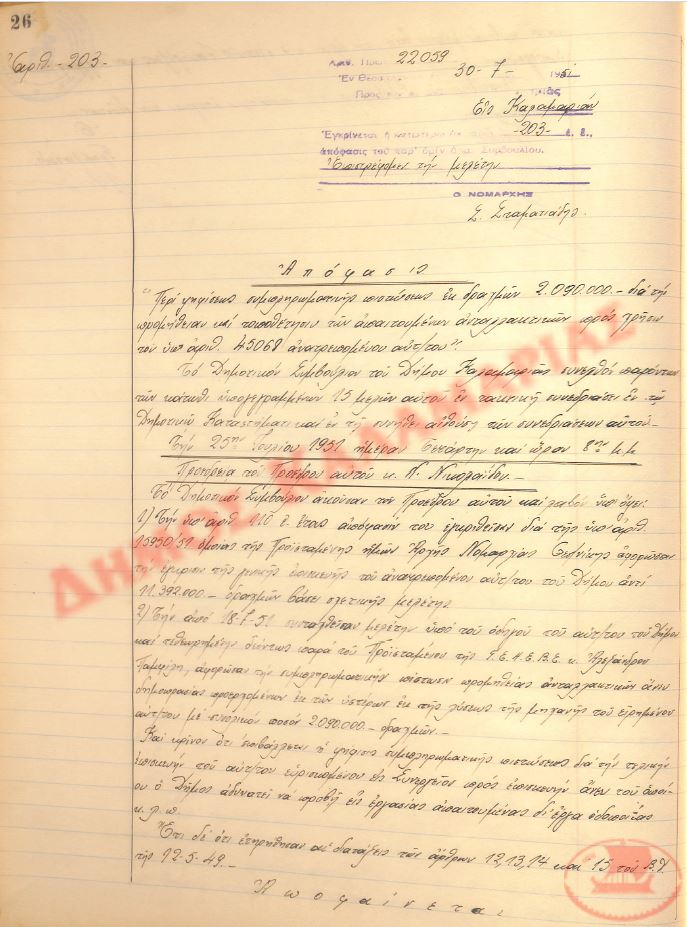 26
Ἀριθ. - 203 -
Ἀριθ. Πρωτ. 22059
Ἐν Θεσσ. 30-7-1951
Πρὸς
Εἰς Καλαμαριάν
Ἐγκρίνεται ἡ -203- ἐ. ἔ.,
ἀπόφασις τοῦ παρ' ὑμῖν Δημ. Συμβουλίου.
Ἐπιστρέφομεν τὴν μελέτην
Ο ΝΟΜΑΡΧΗΣ
Σ. Σταματιάδης.
Ἀπόφασις
"Περὶ ψηφίσεως συμπληρωματικῆς πιστώσεως ἐκ δραχμῶν 2.090.000.- διὰ τὴν
προμήθειαν καὶ τοποθέτησιν τῶν ἀπαιτουμένων ἀνταλλακτικῶν πρὸς χρῆσιν
τοῦ ὑπ' ἀριθ. 45068 ἀνατρεπομένου αὐτ/του".
Τὸ Δημοτικὸν Συμβούλιον τοῦ Δήμου Καλαμαριᾶς συνελθὸν παρόντων
τῶν κάτωθι ὑπογεγραμμένων 15 μελῶν αὐτοῦ ἐν τακτικῇ συνεδριάσει ἐν τῷ
Δημοτικῷ Καταστήματι καὶ ἐν τῇ συνήθει αἰθούσῃ τῶν συνεδριάσεων αὐτοῦ.-
Τὴν 25ην Ἰουλίου 1951 ἡμέραν Τετάρτην καὶ ὥραν 8ην μ.μ
Προεδρεία τοῦ Προέδρου αὐτοῦ κ. Π. Νικολαΐδου.-
Τὸ Δημοτικὸν Συμβούλιον ἀκοῦσαν τοῦ Προέδρου αὐτοῦ καὶ λαβὸν ὑπ' ὄψει:
1) Τὴν ὑπ' ἀριθ. 110 ἐ. ἔτους ἀπόφασίν του ἐγκριθεῖσαν διὰ τῆς ὑπ' ἀριθ.
15950/51 ὁμοίας τῆς Προϊσταμένης ἡμῶν Ἀρχῆς Νομαρχίας Θεσ/νίκης ἀφορῶσαν
τὴν ἔγκρισιν τῆς γενικῆς ἐπισκευῆς τοῦ ἀνατρεπομένου αὐτ/του τοῦ Δήμου ἀντὶ
11.392.000.- δραχμῶν βάσει σχετικῆς μελέτης
2) Τὴν ἀπὸ 51 συνταχθεῖσαν μελέτην ὑπὸ τοῦ ὁδηγοῦ τοῦ αὐτ/του τοῦ Δήμου
καὶ τεθεωρημένην δεόντως παρὰ τοῦ Προϊσταμένου τῆς κ. Ἀλεξάνδρου
Παμφίλη, ἀφορῶσαν τὴν συμπληρωματικὴν πίστωσιν προμηθείας ἀνταλλακτικῶν ἄνευ
δημοπρασίας προερχομένων ἐκ τῶν ὑστέρων ἐκ τῆς λύσεως τῆς μηχανῆς τοῦ εἰρημένου
αὐτ/του μὲ συνολικὸν ποσὸν 2.090.000.- δραχμῶν.-
Καὶ κρῖνον ὅτι ἐπιβάλλεται ἡ ψήφισις συμπληρωματικῆς πιστώσεως διὰ τὴν τελικὴν
ἐπισκευὴν τοῦ αὐτ/του εὑρισκομένου εἰς Συνεργεῖον πρὸς ἐπισκευὴν ἄνευ τοῦ ὁποί-
ου ὁ Δῆμος ἀδυνατεῖ νὰ προβῇ εἰς ἐργασίας ἀπαιτουμένας δι' ἔργα ὁδοποιΐας
κ.λ.π.
Ἔτι δὲ ὅτι ἐτηρήθησαν αἱ διατάξεις τῶν ἄρθρων 12, 13, 14 καὶ 15 τοῦ Β.Δ.
τῆς 12-5-49.-
Ἀποφαίνεται
ΔΗΜΟΣ ΚΑΛΑΜΑΡΙΑΣ